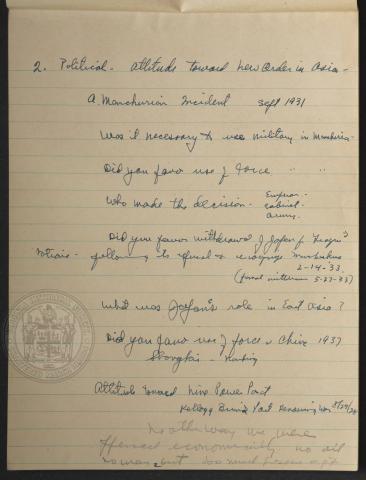 2. Political - Attitude toward New Order in Asia -
A. Manchurian Incident Sept 1931
Was it necessary to use military in Manchuria -
Did you favor use of force " "
Who made the decision - Emperor -
cabinet -
army -
Did you favor withdrawal of Japan fr League
following its refusal to recognize
2-14-33
(formal withdrawal 5-27-33)
What was Japan's role in East Asia?
Did you favor use of force in China 1937
Shanghai - Nanking
Attitude toward Nine Power Pact
Kellogg Briand Pact Renouncing War 8/27/28
No other way we were
economically no oil
but too much